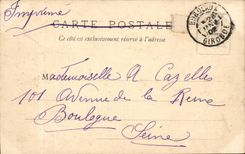 Imprimé
CARTE POSTALE
Ce côté est exclusivement réservé à l'adresse
BORDEAUX
GIRONDE
Mademoiselle A Cazelle
101 Avenue de la Reine
Boulogne
Seine